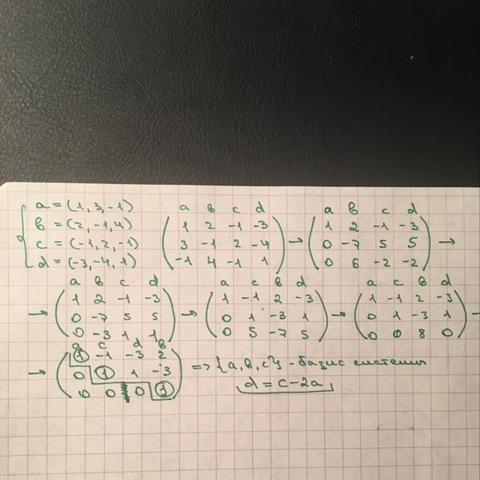 a = (1, 3, -1)
b = (2, -1, 4)
c = (-1, 2, -1)
d = (-3, -4, 1)
a b c d
1 2 -1 -3
3 -1 2 -4
-1 4 -1 1
→
a b c d
1 2 -1 -3
0 -7 5 5
0 6 -2 -2
→
→
a b c d
1 2 -1 -3
0 -7 5 5
0 -3 1 1
→
a c b d
1 -1 2 -3
0 1 -3 1
0 5 -7 5
→
a c b d
1 -1 2 -3
0 1 -3 1
0 0 8 0
→
a c d b
1 -1 -3 2
0 1 1 -3
0 0 0 1
=> {a, b, c} - базис системы
d = c - 2a